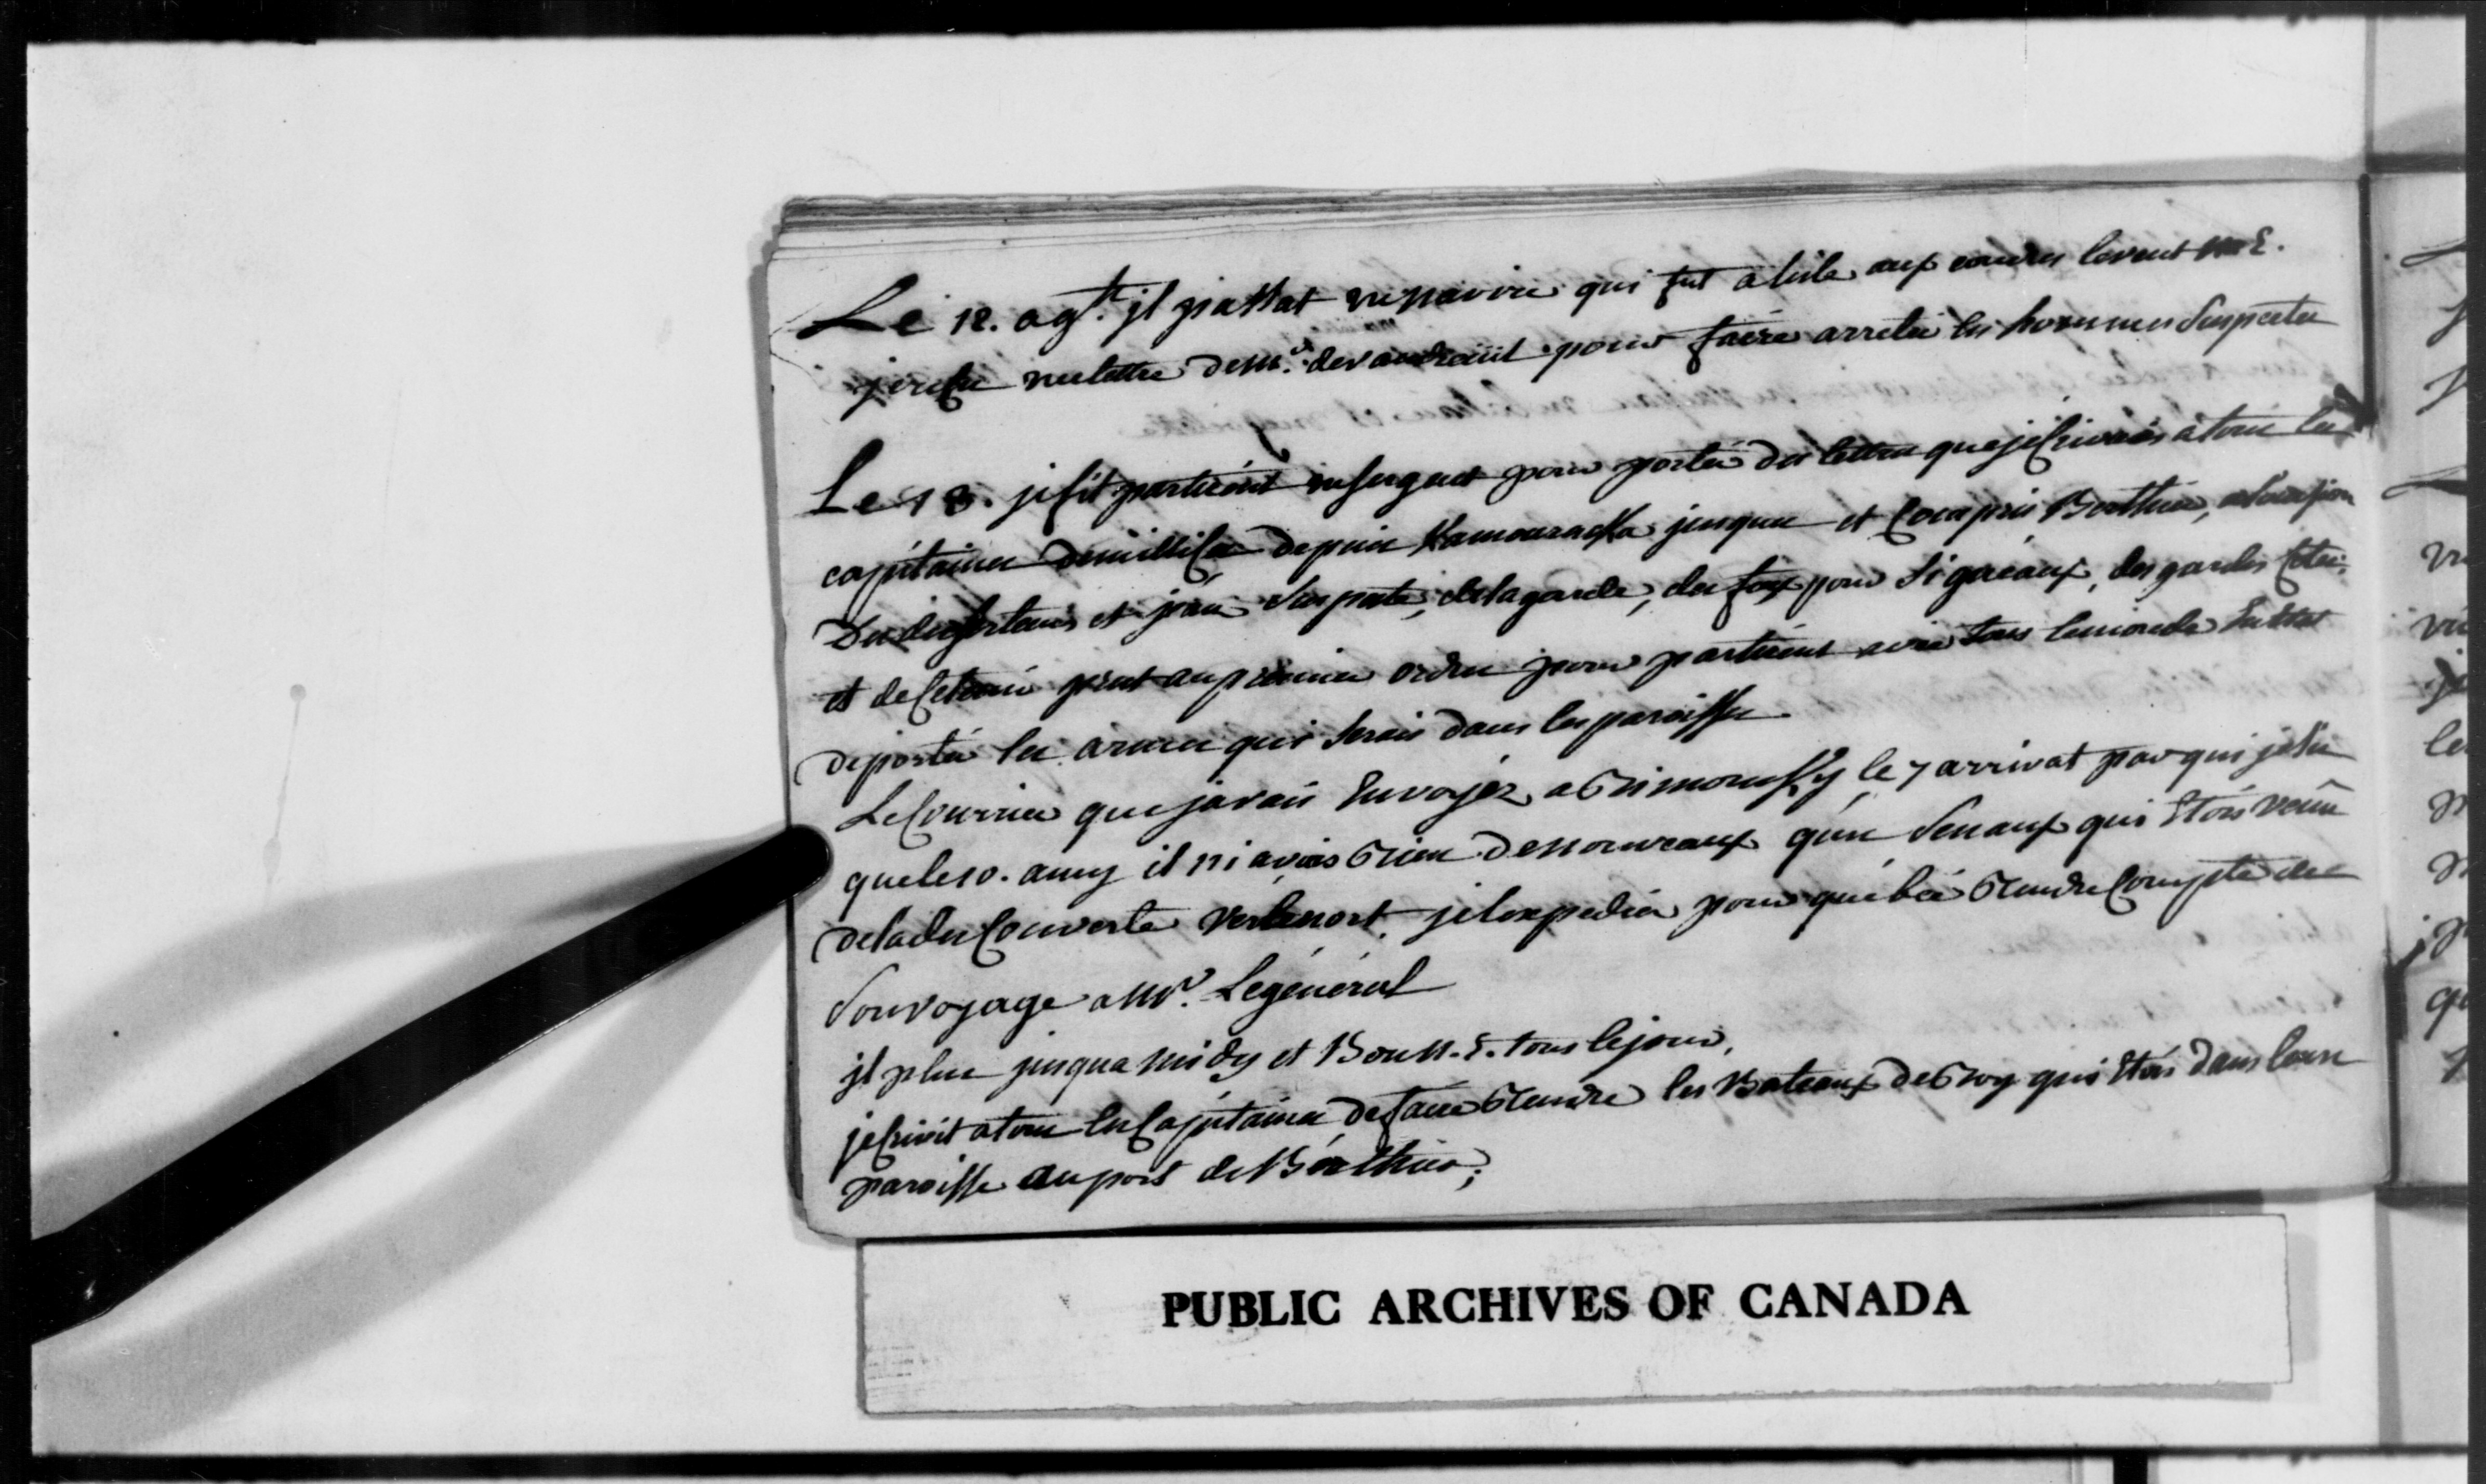 Le 12. agt. jl passat un navire qui fut a lisle aux coudres levent N E.
je recu une lettre de Mr. de vaudreüil pour faire arreter les hommes suspectes
Le 13. je fit partir un sergent pour porter des lettres que jecrivais a tous les
capitaines de millice depuis Kamouraska jusques et compris Berthier,
des deserteurs et gens suspectes, de la garde, des feux pour signeaux, des gardes
et de se tenir pret au premier ordre pour partir avec tous le monde
de porter les armes qui serois dans les paroisses.
Le courrier que javais envoyéz a Rimousky le 7 arrivat par qui je su
que le 10. au il ni avais Rien de nouveaux qun senaux qui Etois venu
de la descouverte vers le nort. je lexpedier pour quebec Rendre compte de
son voyage a Mr. Le général
jl plue jusqua midy et Bon N. E. tous le jour,
jecrivit a tous les capitaines de faire Rendre les Bateaux de Roy qui Etois dans leurs
paroisse au port de Berthier;
PUBLIC ARCHIVES OF CANADA